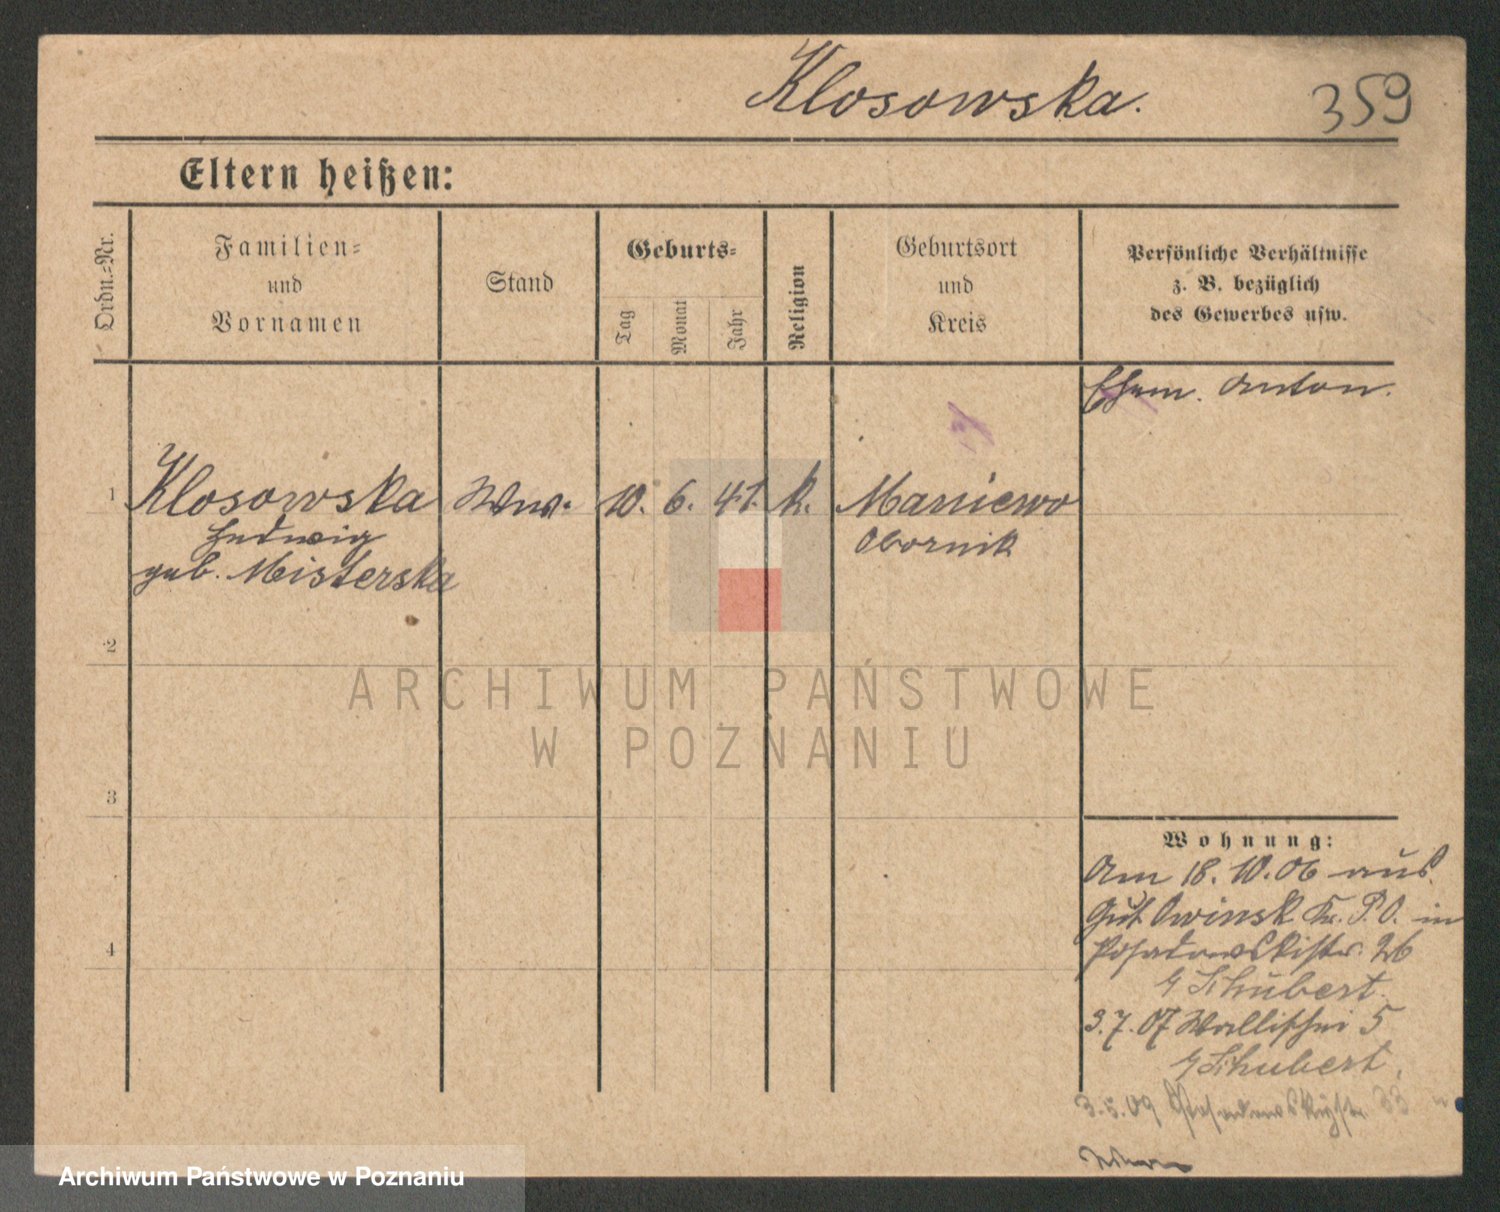 Klosowska.
359
Eltern heißen:
Ordn.-Nr.
Familien-
und
Vornamen
Stand
Geburts-
Tag
Monat
Jahr
Religion
Geburtsort
und
Kreis
Persönliche Verhältnisse
z. B. bezüglich
des Gewerbes usw.
Ehem. Anton.
1
Klosowska
Hedwig
geb. Misterska
Wwe.
10. 6. 41.
k.
Maniewo
Obornik
2
3
4
Wohnung:
Am 18. 10. 06 aus
Gut Owinsk Kr. P.O. in
Posadowskistr. 26
b/ Schubert.
3.7.07 Wallischei 5
b/ Schubert.
3.5.09 Posadowskystr. 33
ARCHIWUM PAŃSTWOWE
W POZNANIU
Archiwum Państwowe w Poznaniu